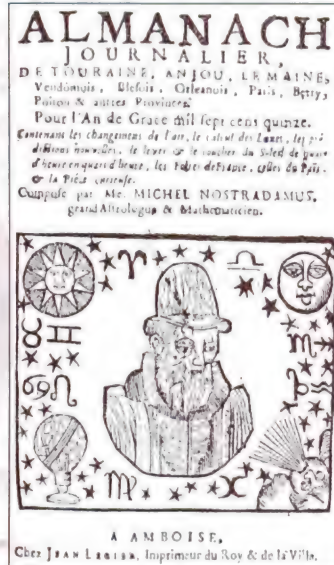 ALMANACH
JOURNALIER,
DE TOURAINE, ANJOU, LE MAINE,
Vendômois, Blesois, Orleanois, Paris, Berry,
Poitou & autres Provinces.
Pour l'An de Grace mil sept cens quinze.
Contenant les changemens de l'air, le calcul des Lunes, les pré
dictions nouvelles, le lever & le coucher du Soleil de quart
d'heure en quart d'heure, les Foires de France, celles du Païs,
& la Piéce curieuse.
Composé par Me. MICHEL NOSTRADAMUS,
grand Astrologue & Mathematicien.
A AMBOISE,
Chez JEAN LEGIER, Imprimeur du Roy & de la Ville.